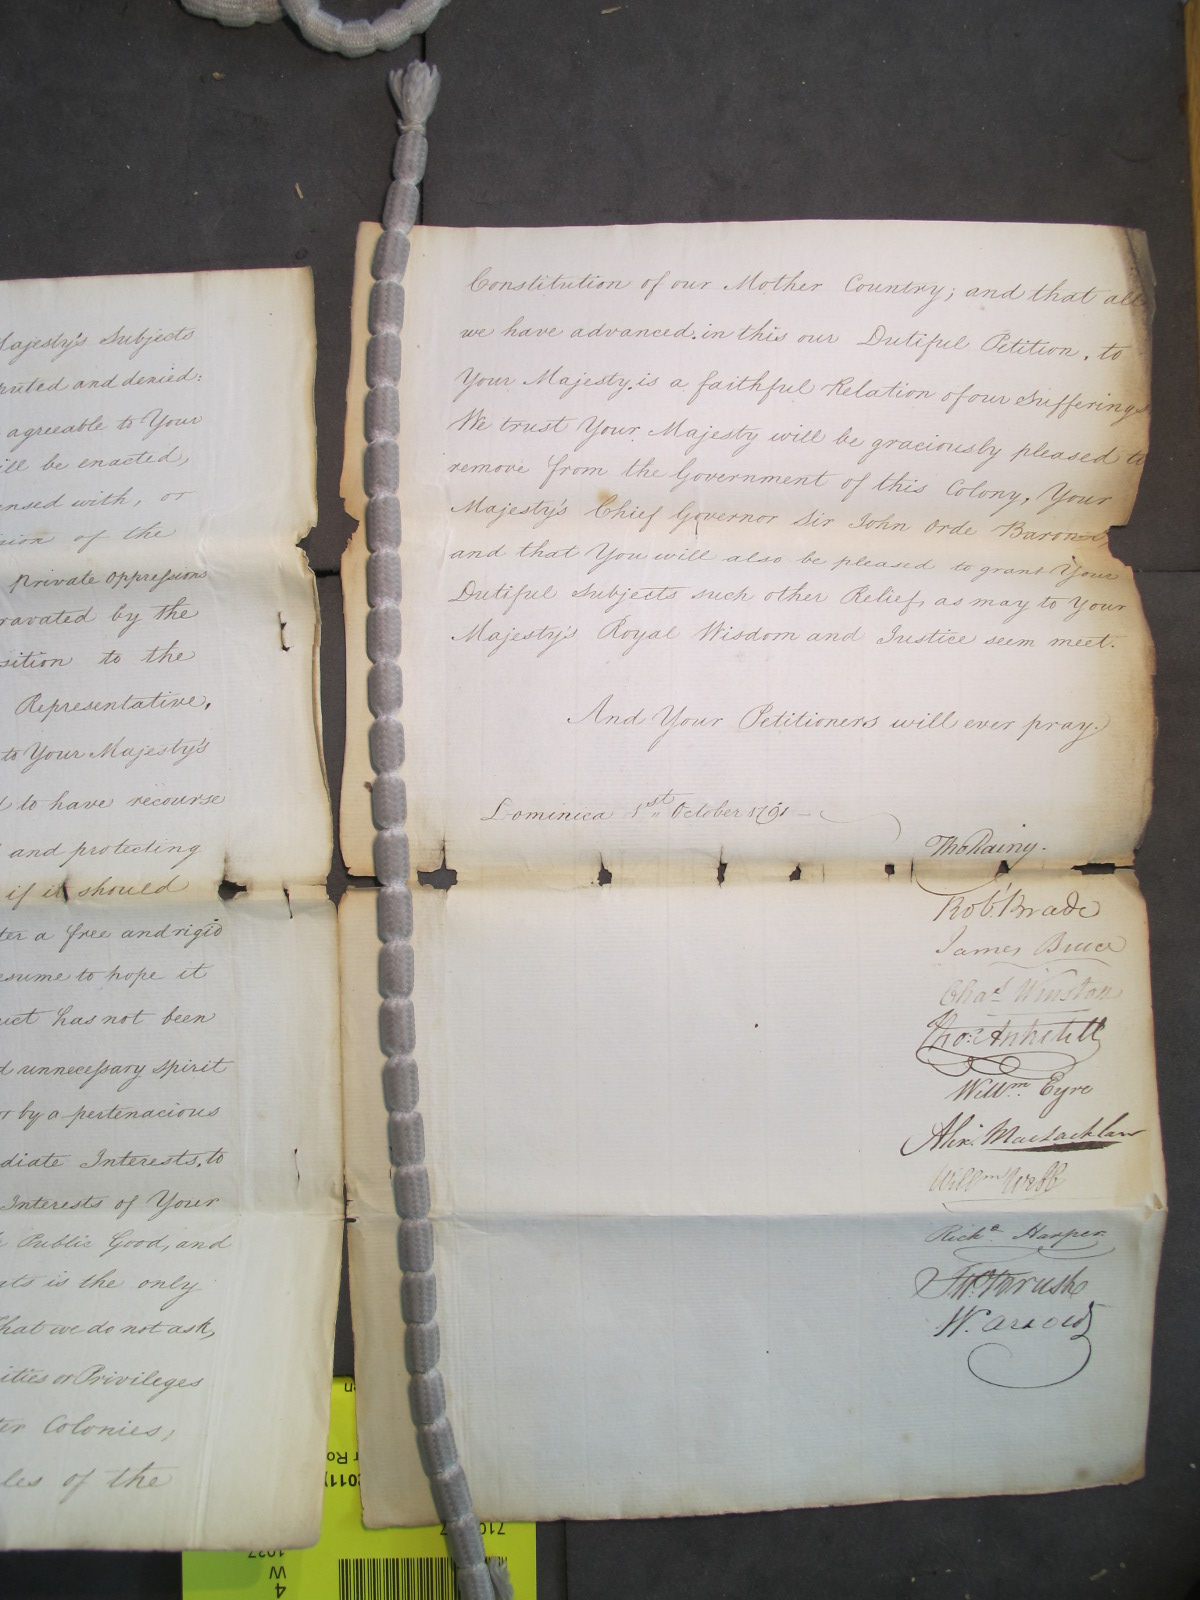 Majesty's Subjects
and denied:
agreeable to Your
will be enacted,
with, or
of the
Private Oppressions
by the
to the
Representative,
to Your Majesty's
to have recourse
and protecting
if it should
a free and rigid
to hope it
has not been
unnecessary spirit
or by a pertenacious
Interests, to
Interests of Your
Public Good, and
is the only
that we do not ask,
or Privileges
Colonies,
of the
Constitution of our Mother Country; and that all
we have advanced in this our Dutiful Petition, to
Your Majesty, is a faithful Relation of our Sufferings
We trust Your Majesty will be graciously pleased to
remove from the Government of this Colony, Your
Majesty's Chief Governor Sir John Orde Baronet,
and that You will also be pleased to grant Your
Dutiful Subjects such other Relief, as may to Your
Majesty's Royal Wisdom and Justice seem meet.
And Your Petitioners will ever pray.
Dominica 1st October 1791
Tho Rainy.
Robt Brade
James Bruce
Chas Winston
Thos Anketell
Willm Eyre
Alexr MacLachlan
Willm Webb
Richd Harper
Thrush
W. Arnold
2011)
W
4
1027